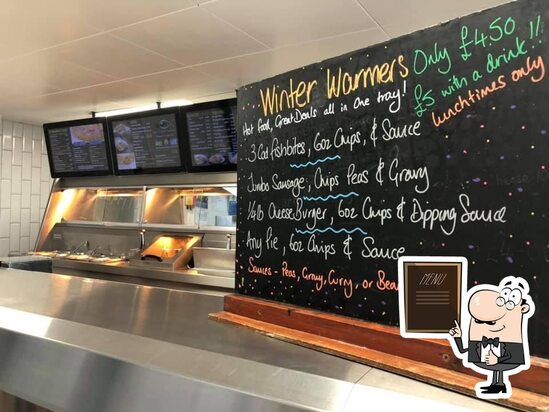 Winter Warmers
Only £4.50
£5 with a drink!!
lunchtimes only
Hot food, Great Deals all in one tray!
3 Cod Fishbites, 6oz Chips, & Sauce
Jumbo Sausage, Chips Peas & Gravy
1/4lb CheeseBurger, 6oz Chips & Dipping Sauce
Any Pie, 6oz Chips & Sauce
Sauces - Peas, Gravy, Curry, or Bea
MENU